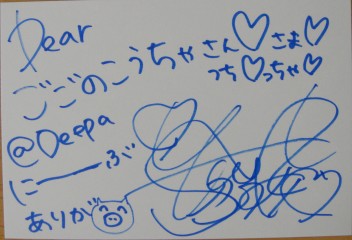 Dear
ごごのこうちゃさん♡さま♡
っち♡っちゃ♡
@Deepa
にーーぶ
ありが